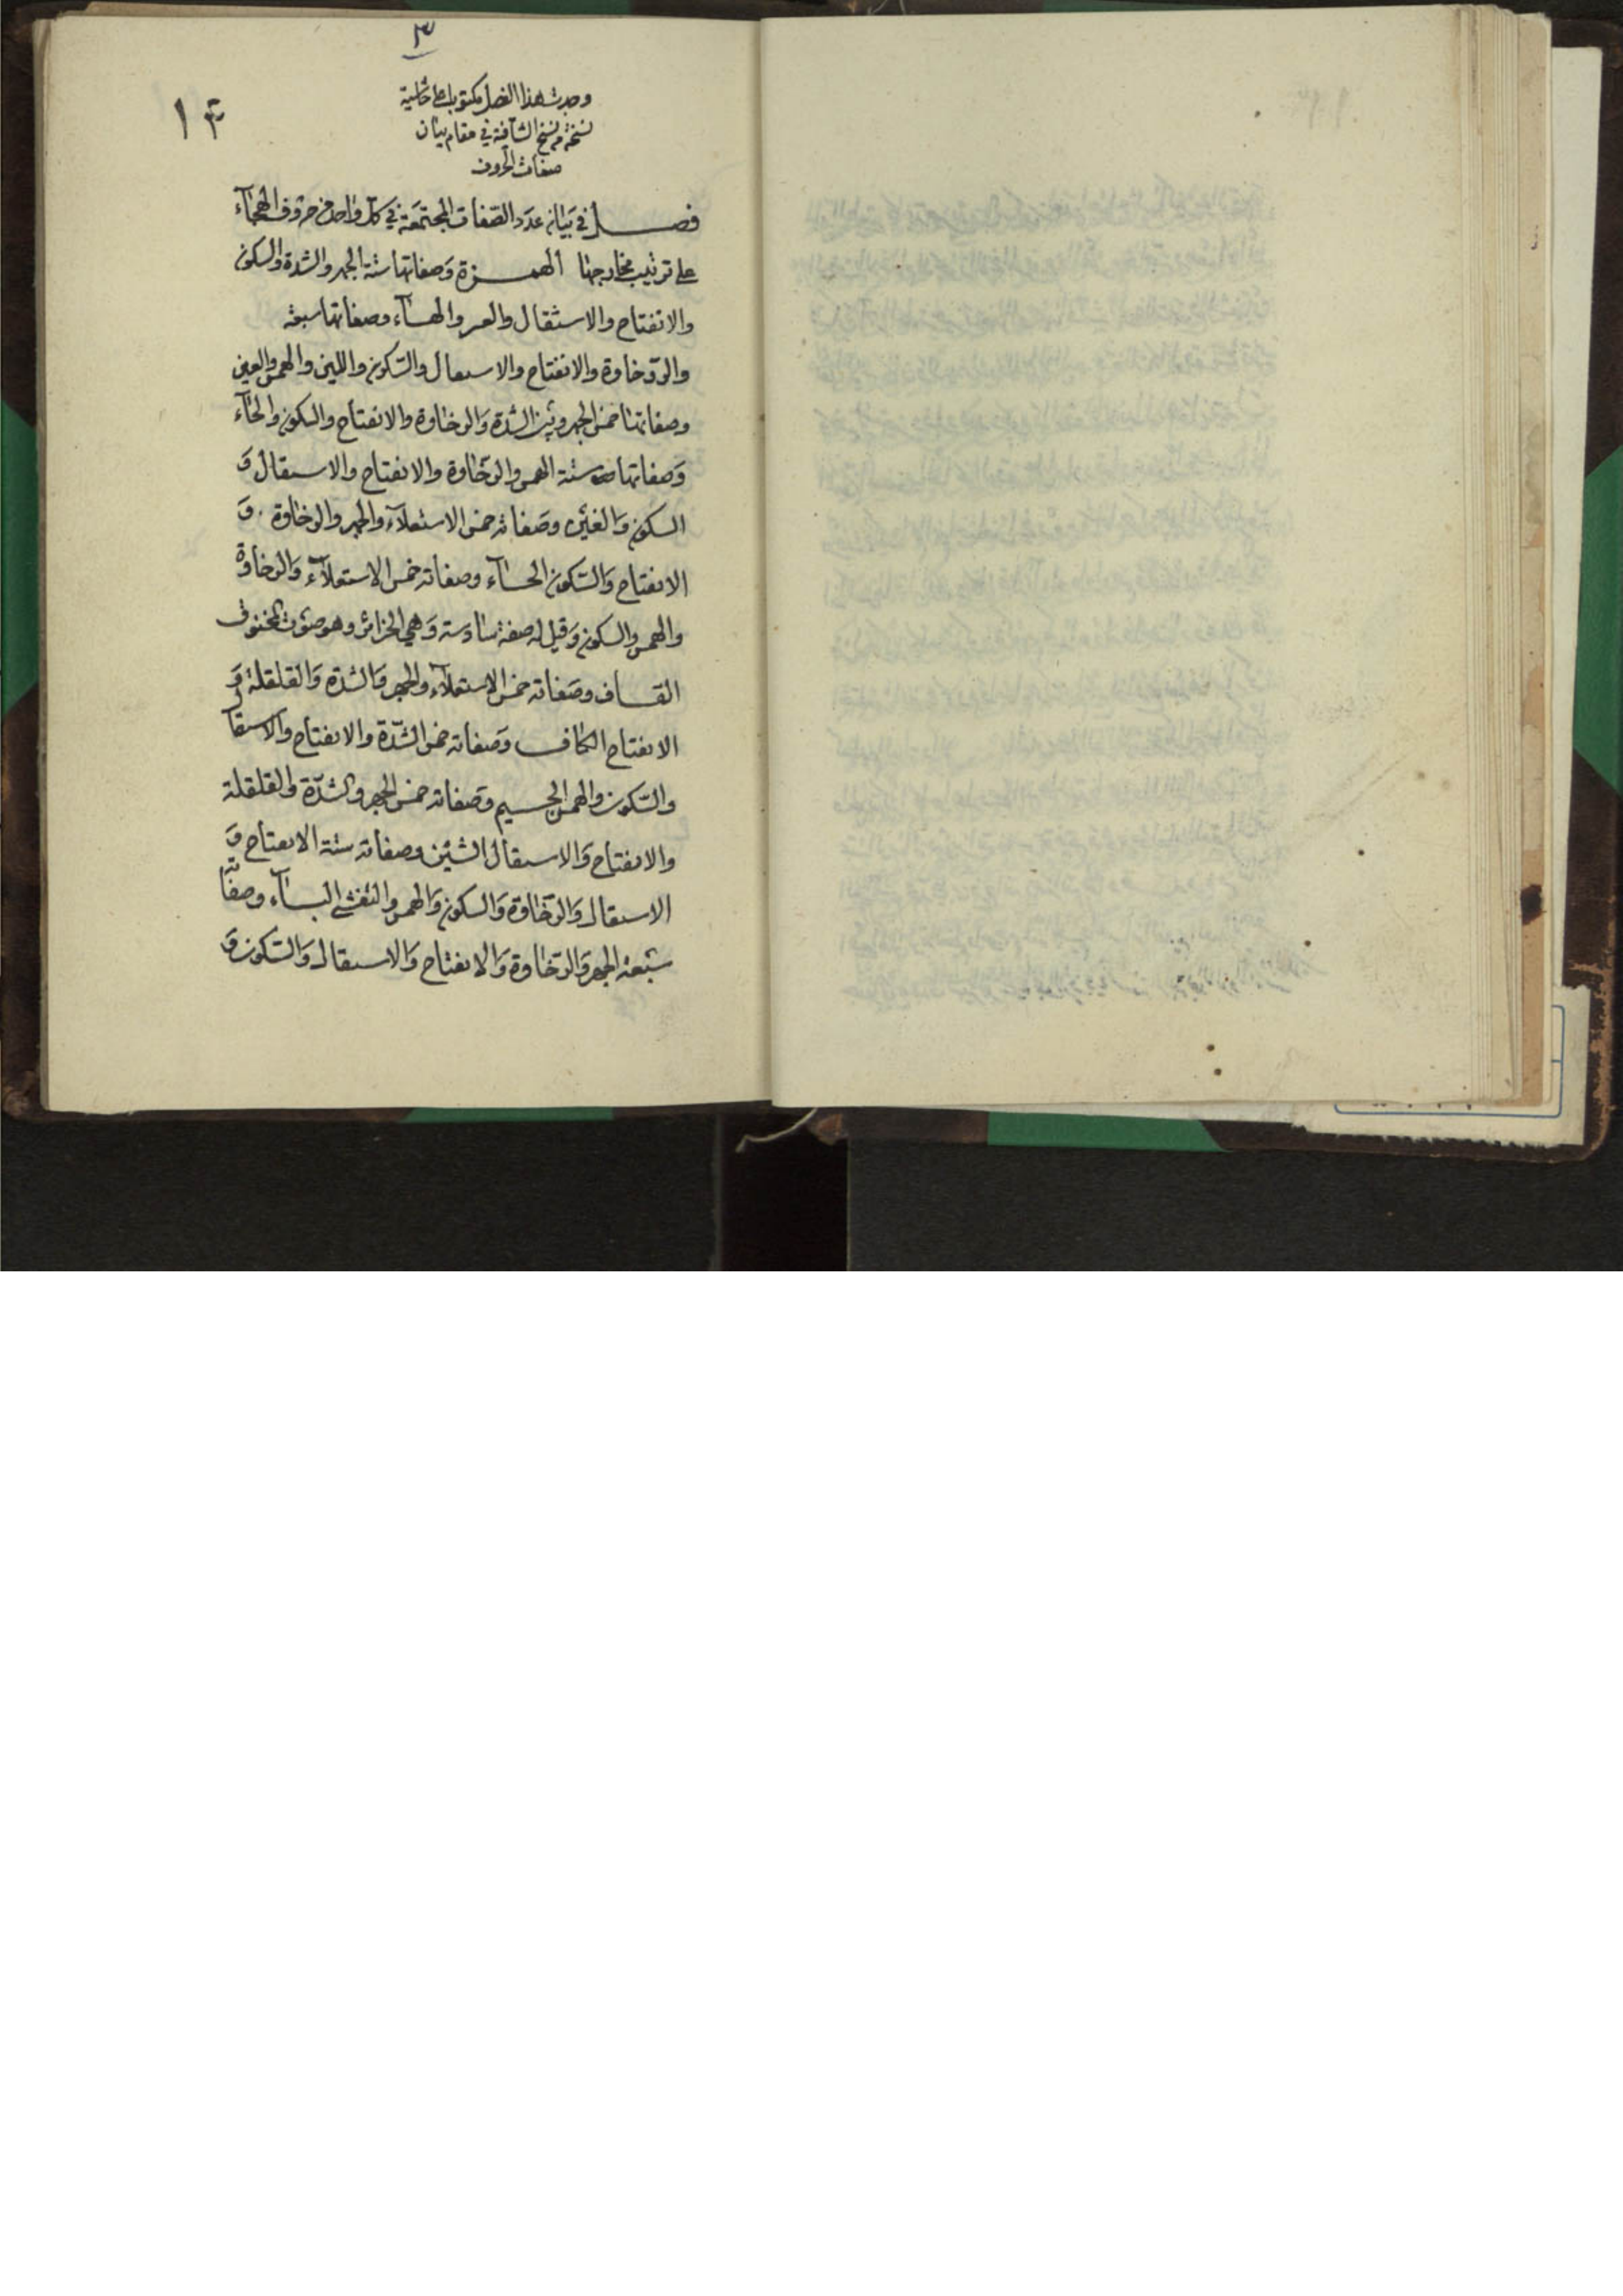 ٣
١٣
وجدت هذا الفصل مكتوبا على حاشية
نسخة من نسخ الشافية في مقام بيان
صفات الحروف
فصل في بَيان عدَد الصّفات المجتمَعة في كلّ واحد من حروف الهجآء
على ترتيب مخارجها الهمزة وَصفاتها ستة الجهر والشدة والسكون
والانفتاح والاستقال والعر والهاء وصفاتها سبعة
والرّخاوة والانفتاح والاسقال والسّكون واللين والهمس والعين
وصفاتها خمس الجهر وبين الشدة وَالرخاوة والانفتاح والسكون والحآء
وَصفاتها ستة الهمس والرخّاوة والانفتاح والاستقال وَ
السكون وَالغين وصَفاته خمس الاستعلآء والجهر والرخاوة وَ
الانفتاح وَالسّكون الخآء وصفاته خمس الاستعلآء وَالرخاوة
والهمس والسكون وَقيل له صفة سادسة وَهي الخرائر وهو صَوت المخنوق
القاف وصَفاته خمس الاستعلآء والجهر وَالشدة وَالقلقلة وَ
الانفتاح الكاف وَصَفاته خمس الشّدّة والانفتاح والاستقال
والسّكون والهمس الجيم وَصَفاته خمس الجهر والشدّة والقلقلة
والانفتاح وَالاستقال الشين وصفاته ستة الانفتاح وَ
الاستقال وَالرّخاوة وَالسكون وَالهمس والتفشي اليآء وصفاته
سَبعة الجهر وَالرّخاوة وَالانفتاح وَالاستقال وَالسّكون وَ